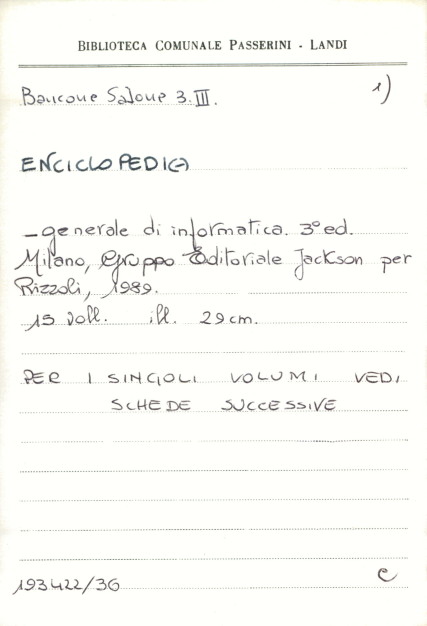 BIBLIOTECA COMUNALE PASSERINI - LANDI
Bancone Salone 3.III. 1)
ENCICLOPEDIA
_generale di informatica. 3° ed.
Milano, Gruppo Editoriale Jackson per
Rizzoli, 1989.
15 voll. ill. 29 cm.
PER I SINGOLI VOLUMI VEDI
SCHEDE SUCCESSIVE
193422/36 e